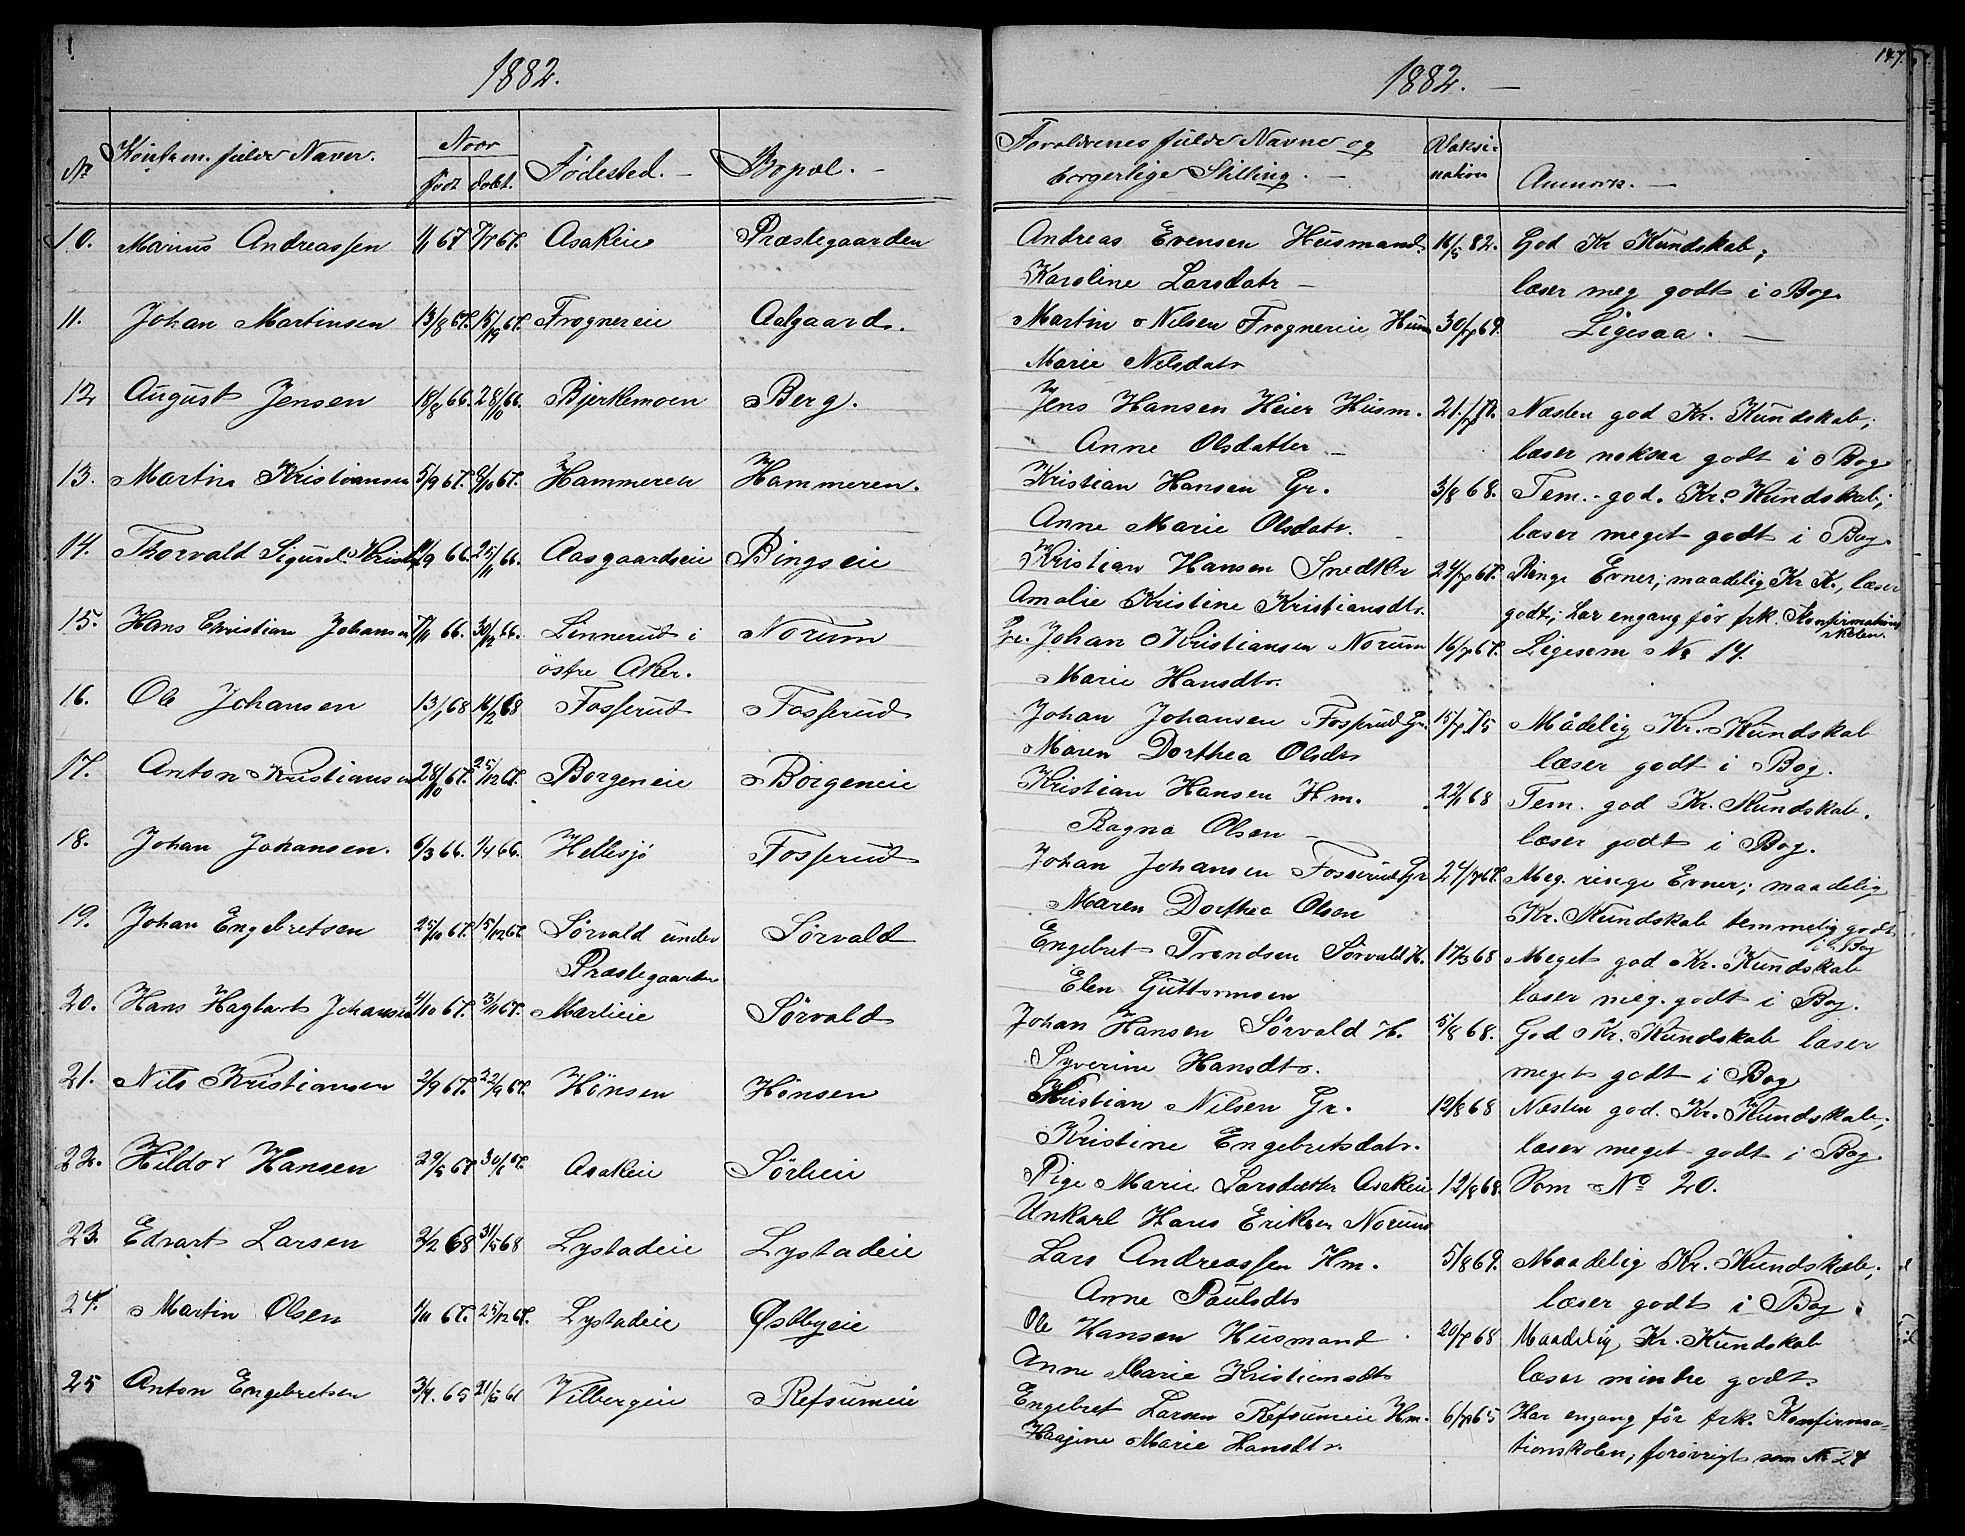 1882.
1882. —
147.
No
Konfirm. fulde Navne.
Noar
født
døbt.
Fødested. —
Bopæl. —
Forældrenes fulde Navne og
borgerlige Stilling. —
Vaksi-
nation
Anmærk. —
10. Marius Andreassen 67 67. Asakeie Præstegaarden Andreas Evensen Husmand. 16/5 82. God Kr Kundskab;
Karoline Larsdatr — læser meg godt i Bog.
11. Johan Martinsen 13/8 67. 67. Frognereie Aalgaard. Martin Nilsen Frognereie Husm 69. Ligesaa. —
Marie Nilsdatr
12 August Jensen 18/8 66. 28/10 66. Bjerkemoen Berg. Jens Hansen Heier Husm. Næsten god Kr. Kundskab;
Anne Olsdatter — læser noksaa godt i Bog
13. Martin Kristiansen 5/9 67. 67. Hammeren Hammeren. Kristian Hansen Gr. 3/8 68. Tem. god. Kr. Kundskab;
Anne Marie Olsdatr. læser meget godt i Bog.
14. Thorvald Sigurd 66. 25/11 66. Aasgaardseie Bingseie Kristian Hansen Snedker 24/7 67. Ringe Evner; maadelig Kr K., læser
Amalie Kristine Kristiansdtr. godt; har engang før frk. Konfirmations
skolen.
15. Hans Christian Johansen 66. 30/12 66. Linnerud i Norum Gr. Johan Kristiansen Norum 16/7 67. Ligesom No 14.
østre Aker. Marie Hansdtr.
16. Ole Johansen 13/1 68 16/2 68 Fosserud Fosserud Johan Johansen Fosserud Gr. 15/7 75 Mådelig Kr. Kundskab
Maren Dorthea Olsdtr læser godt i Bog.
17. Anton Kristiansen 28/10 67. 25/12 67. Borgeneie Borgeneie Kristian Hansen Hm. 22/1 68 Tem. god Kr. Kundskab.
Ragna Olsen — læser godt i Bog.
18. Johan Johansen. 6/3 66. 1/4 66. Hellesjø Fosserud Johan Johansen Fosserud Gr 24/7 67. Meg. ringe Evner; maadelig
Maren Dorthea Olsen Kr. Kundskab temmelig godt
i Bog
19. Johan Engebretsen 25/10 67. 15/12 67. Sørvald under Sørvald Engebret Trondsen Sørvald H. 17/3 68 Meget god Kr. Kundskab
Præstegaarden Elen Guttormsen læser meg. godt i Bog.
20. Hans Hagbart Johansen 67. 3/11 67. Marlieie Sørvald Johan Hansen Sørvald H. 5/8 68. God Kr. Kundskab læser
Syverine Hansdtr. meget godt i Bog
21. Nils Kristiansen 2/9 67. 22/9 67. Hønsen Hønsen Kristian Nilsen Gr. 12/8 68 Næsten god. Kr. Kundskab;
Kristine Engebretsdatr. læser meget godt i Bog.
22. Hildor Hansen 29/5 67 30/6 67. Asakeie Sørlieie Pige Marie Larsdatter Asakeie 12/8 68. Som No 20.
Unkarl Hans Eriksen Norum
23. Edvart Larsen 2/2 68 31/5 68 Lystadeie Lystadeie Lars Andreassen Hm. 5/8 69. Maadelig Kr. Kundskab;
Anne Paulsdtr læser godt i Bog.
24. Martin Olsen 67. 25/12 67. Lystadeie Østbyeie Ole Hansen Husmand. 20/7 68 Maadelig Kr. Kundskab
Anne Marie Kristiansdtr læser mindre godt.
25 Anton Engebretsen 3/4. 65 21/5 Vilbergeie Refsumeie Engebret Larsen Refsumeie Hm. 6/7 65 Har engang før frk. Konfirma-
Marie Hansdtr. tionskolen; forøvrigt som No 24